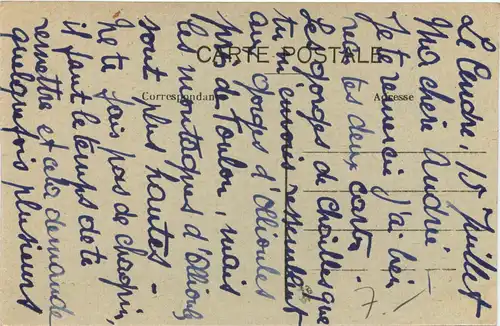 CARTE POSTALE
Correspondance
Adresse
Le Cendre, 10 Juillet
Ma chère Andrée
Je te remercie j'ai bien
reçu tes deux cartes.
Les gorges de Chailles que
tu m'envois ressemblent
aux gorges d'Ollioules
près de Toulon, mais
les montagnes d'Ollioules
sont plus hautes.
Ne te fais pas de chagrin,
il faut le temps de te
remettre et cela demande
quelquefois plusieurs